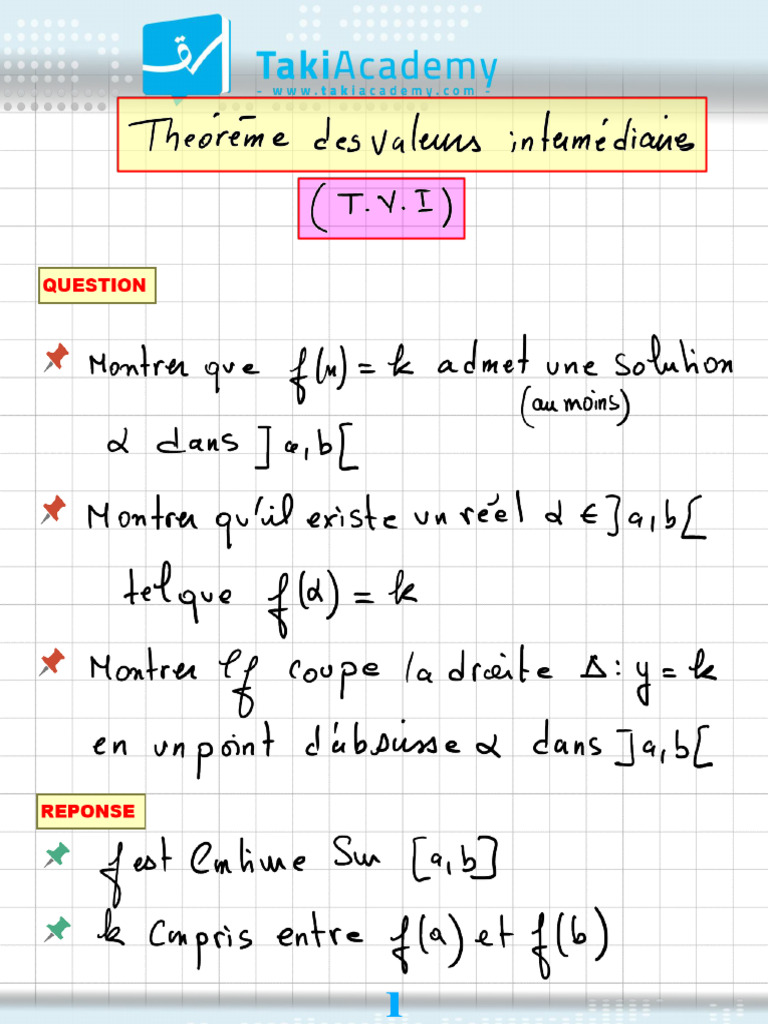 TakiAcademy
- www.takiacademy.com -
Théorème des valeurs intermédiaires
(T.V.I)
QUESTION
Montrer que f(x) = k admet une solution
(au moins)
α dans ]a,b[
Montrer qu'il existe un réel α ∈ ]a,b[
tel que f(α) = k
Montrer ℓf coupe la droite Δ: y = k
en un point d'absisse α dans ]a,b[
REPONSE
f est Continue Sur [a,b]
k Compris entre f(a) et f(b)
1